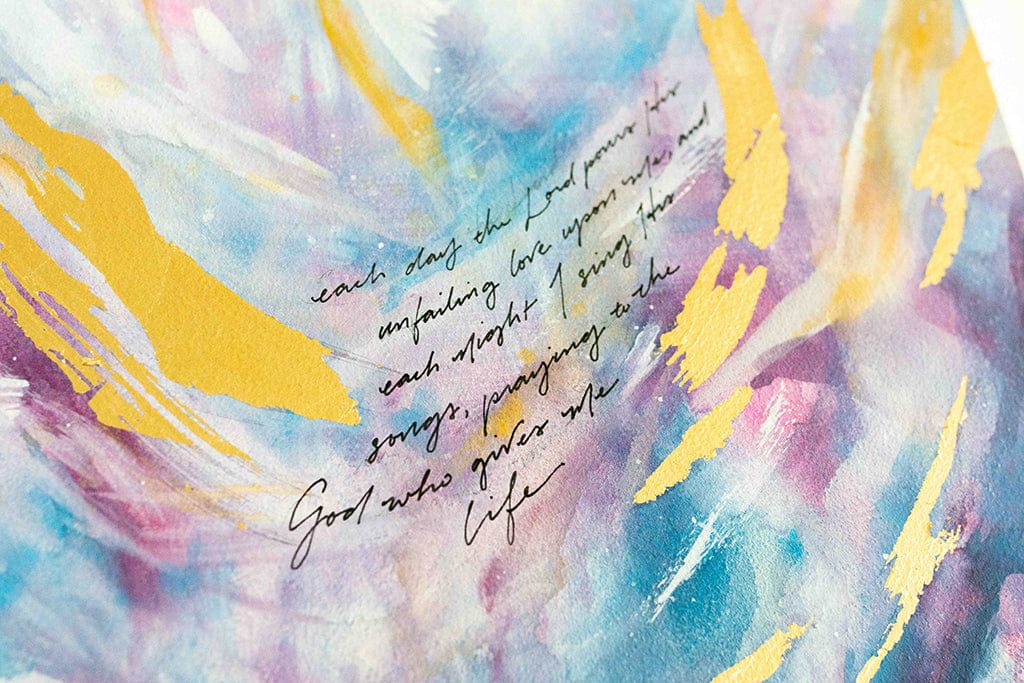 each day the Lord pours His
unfailing love upon me, and
each night I sing His
songs, praying to the
God who gives me
life